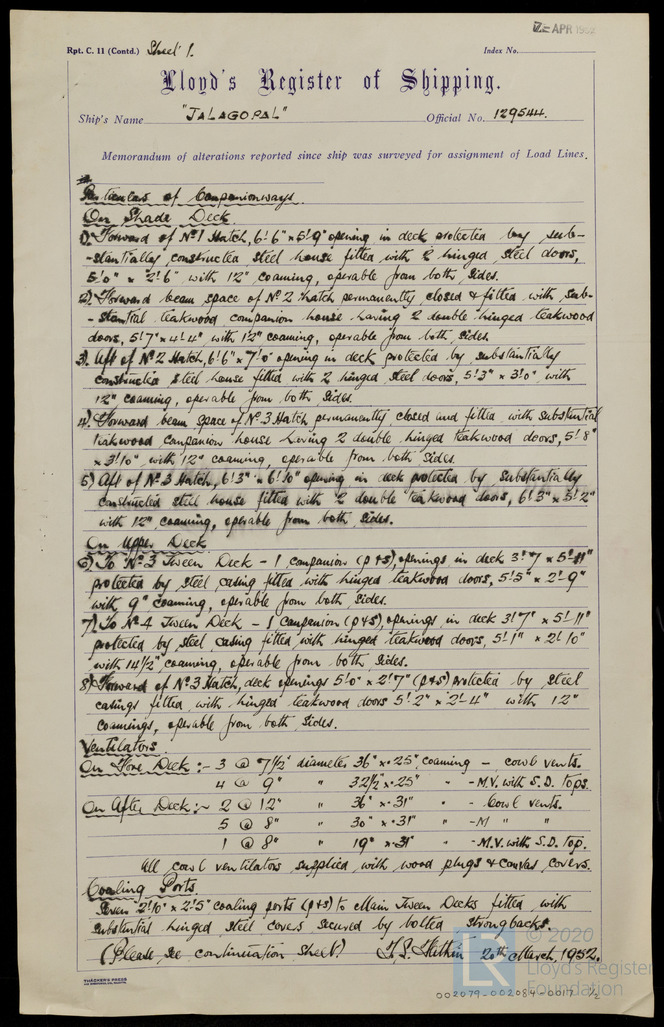 7 - APR 1952
Rpt. C. 11 (Contd.) Sheet 1. Index No.
Lloyd's Register of Shipping.
Ship's Name "JALAGOPAL" Official No. 129544.
Memorandum of alterations reported since ship was surveyed for assignment of Load Lines.
Particulars of Companionways.
On Shade Deck.
1). Forward of No 1 Hatch, 6'.6" x 5'.9" opening in deck protected by sub-
-stantially constructed steel house fitted with 2 hinged steel doors,
5'.0" x 2'.6" with 12" coaming, operable from both sides.
2). Forward beam space of No 2 hatch permanently closed & fitted with sub-
-stantial teakwood companion house having 2 double hinged teakwood
doors, 5'.7" x 4'.4" with 12" coaming, operable from both sides.
3). Aft of No 2 Hatch, 6'.6" x 7'.0" opening in deck protected by substantially
constructed steel house fitted with 2 hinged steel doors, 5'.3" x 3'.0" with
12" coaming, operable from both sides.
4). Forward beam space of No. 3 Hatch permanently closed and fitted with substantial
teakwood companion house having 2 double hinged teakwood doors, 5'.8"
x 3'.10" with 12" coaming, operable from both sides.
5) Aft of No. 3 Hatch, 6'.3" x 6'.10" opening in deck protected by substantially
constructed steel house fitted with 2 double teakwood doors, 6'.3" x 5'.2"
with 12" coaming, operable from both sides.
On Upper Deck
6) To No. 3 Tween Deck - 1 companion (p & s), openings in deck 3'.7 x 5'.11"
protected by steel casing fitted with hinged teakwood doors, 5'.5" x 2'.9"
with 9" coaming, operable from both sides.
7) To No 4 Tween Deck - 1 Companion (p & s), openings in deck 3'.7" x 5'.11"
protected by steel casing fitted with hinged teakwood doors, 5'.1" x 2'.10"
with 14½" coaming, operable from both sides.
8) Forward of No. 3 Hatch, deck openings 5'.0" x 2'.7" (p & s) protected by steel
casings fitted with hinged teakwood doors 5'.2" x 2'.4" with 12"
coamings, operable from both sides.
Ventilators.
On Fore Deck :- 3 @ 7½" diameter 36" x .25" coaming - cowl vents.
4 @ 9" " 32½" x .25" " - M.V. with S.D. tops.
On After Deck :- 2 @ 12" " 36" x .31" " - Cowl vents.
5 @ 8" " 30" x .31" " - M " "
1 @ 8" " 19" x .31" " - M.V. with S.D. top.
All cowl ventilators supplied with wood plugs & canvas covers.
Coaling Ports.
Seven 2'.10" x 2'.5" coaling ports (p & s) to Main Tween Decks fitted with
substantial hinged steel covers secured by bolted strongbacks.
(Please see continuation sheet) 20th March, 1952.
THACKER'S PRESS
002079-002084-0017 1/2
© 2020
LR
Lloyd's Register
Foundation